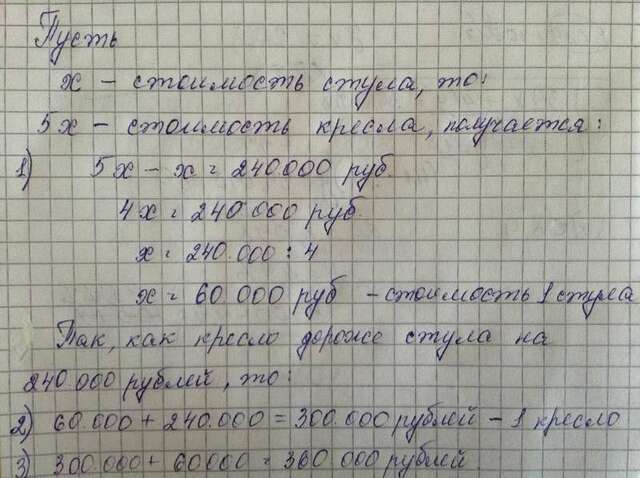 Пусть
x – стоимость стула, то:
5x – стоимость кресла, получается:
1) 5x – x = 240.000 руб.
4x = 240 000 руб.
x = 240.000 : 4
x = 60.000 руб – стоимость 1 стула
Так, как кресло дороже стула на
240 000 рублей, то:
2) 60.000 + 240.000 = 300.000 рублей – 1 кресло
3) 300.000 + 60000 = 360 000 рублей